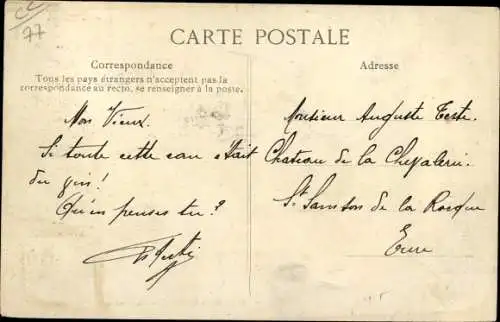 77
CARTE POSTALE
Correspondance
Tous les pays étrangers n'acceptent pas la
correspondance au recto, se renseigner à la poste.
Mon Vieux.
Si toute cette eau était
du gin!
Qu'en penses tu?
Adresse
Monsieur Auguste Teste.
Chateau de la Chevalerie.
St Samson de la Roque
Eure